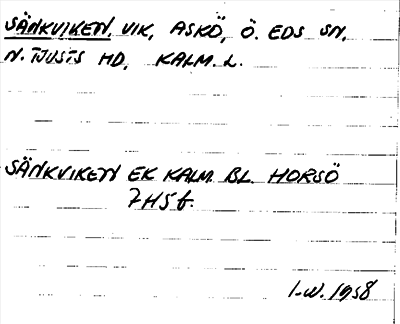 SÄNKVIKEN, VIK, ASKÖ, Ö. EDS SN,
N. TJUSTS HD, KALM. L.
SÄNKVIKEN EK KALM. BL. HORSÖ
7H5f.
I-W. 1958